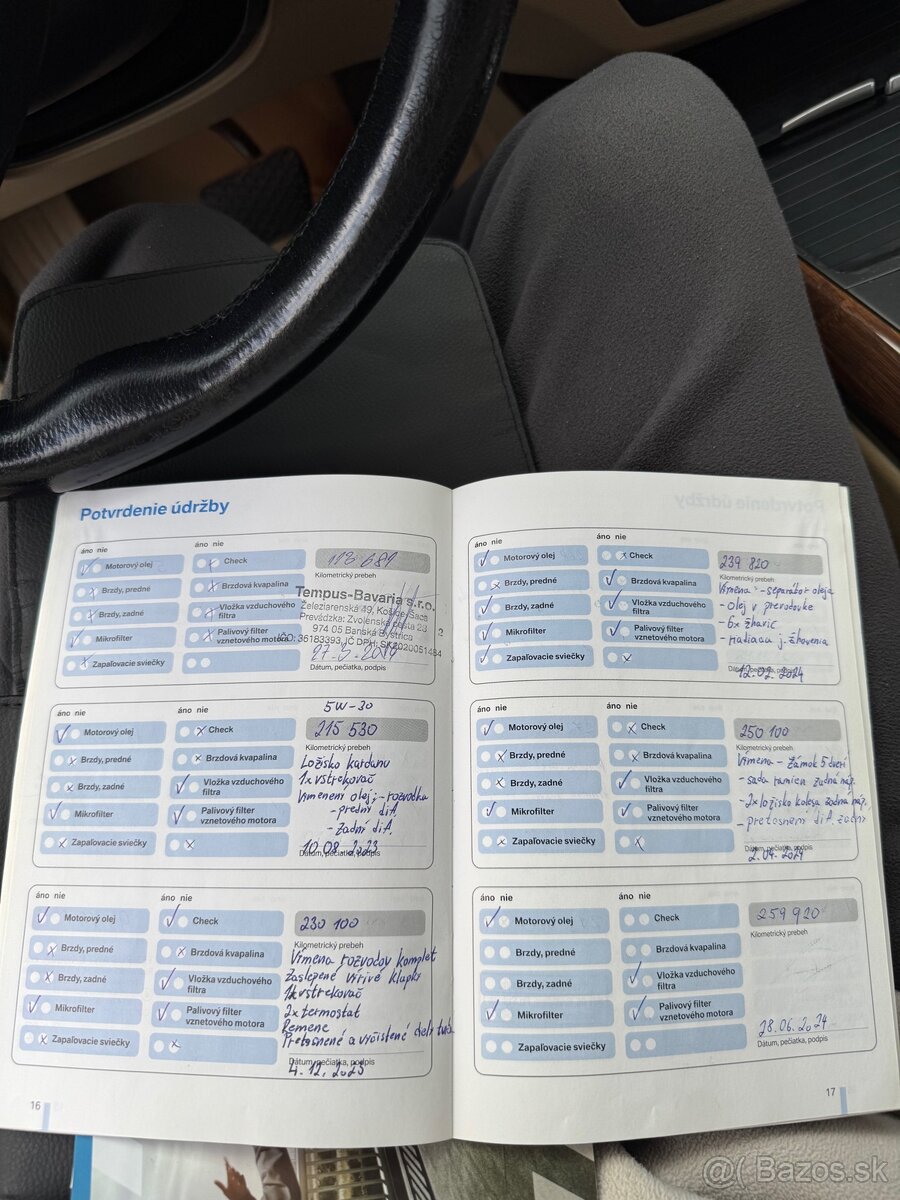 Potvrdenie údržby
áno nie
áno nie
Motorový olej
Check
Brzdy, predné
Brzdová kvapalina
Brzdy, zadné
Vložka vzduchového
filtra
Mikrofilter
Palivový filter
vznetového motora
Zapaľovacie sviečky
Kilometrický prebeh
Tempus-Bavaria s.r.o.
Železiarenská 49, Košice-Šaca
Prevádzka: Zvolenská cesta 23
974 05 Banská Bystrica
2
Dátum, pečiatka, podpis
áno nie
áno nie
Motorový olej
Check
Brzdy, predné
Brzdová kvapalina
Brzdy, zadné
Vložka vzduchového
filtra
Mikrofilter
Palivový filter
vznetového motora
Zapaľovacie sviečky
5W-30
215 530
Kilometrický prebeh
Ložisko kardanu
1x vstrekovač
Výmenem olej; - rozvodka
- predný dif.
- Zadný dif.
10.08.2023
Dátum, pečiatka, podpis
áno nie
áno nie
Motorový olej
Check
Brzdy, predné
Brzdová kvapalina
Brzdy, zadné
Vložka vzduchového
filtra
Mikrofilter
Palivový filter
vznetového motora
Zapaľovacie sviečky
230 100
Kilometrický prebeh
Výmena rozvodov komplet
Zaslepené vírivé klapky
1x vstrekovač
2x termostat
Remene
Pretesnené a vyčistené
Dátum, pečiatka, podpis
4.12.2023
16
áno nie
áno nie
Motorový olej
Check
Brzdy, predné
Brzdová kvapalina
Brzdy, zadné
Vložka vzduchového
filtra
Mikrofilter
Palivový filter
vznetového motora
Zapaľovacie sviečky
239 820
Kilometrický prebeh
Výmena - separátor oleja
- olej v prevodovke
- 6x žhavič
- riadiaca j. žhavenia
Dátum, pečiatka, podpis
12.02.2024
áno nie
áno nie
Motorový olej
Check
Brzdy, predné
Brzdová kvapalina
Brzdy, zadné
Vložka vzduchového
filtra
Mikrofilter
Palivový filter
vznetového motora
Zapaľovacie sviečky
250 100
Kilometrický prebeh
Výmena - Zámok 5 dverí
- sada ramien zadná náp.
- 2x ložisko kolesa zadná náp.
- pretesnený dif. zadný
Dátum, pečiatka, podpis
2.04.2024
áno nie
áno nie
Motorový olej
Check
Brzdy, predné
Brzdová kvapalina
Brzdy, zadné
Vložka vzduchového
filtra
Mikrofilter
Palivový filter
vznetového motora
Zapaľovacie sviečky
259 920
Kilometrický prebeh
28.06.2024
Dátum, pečiatka, podpis
17
@( Bazos.sk